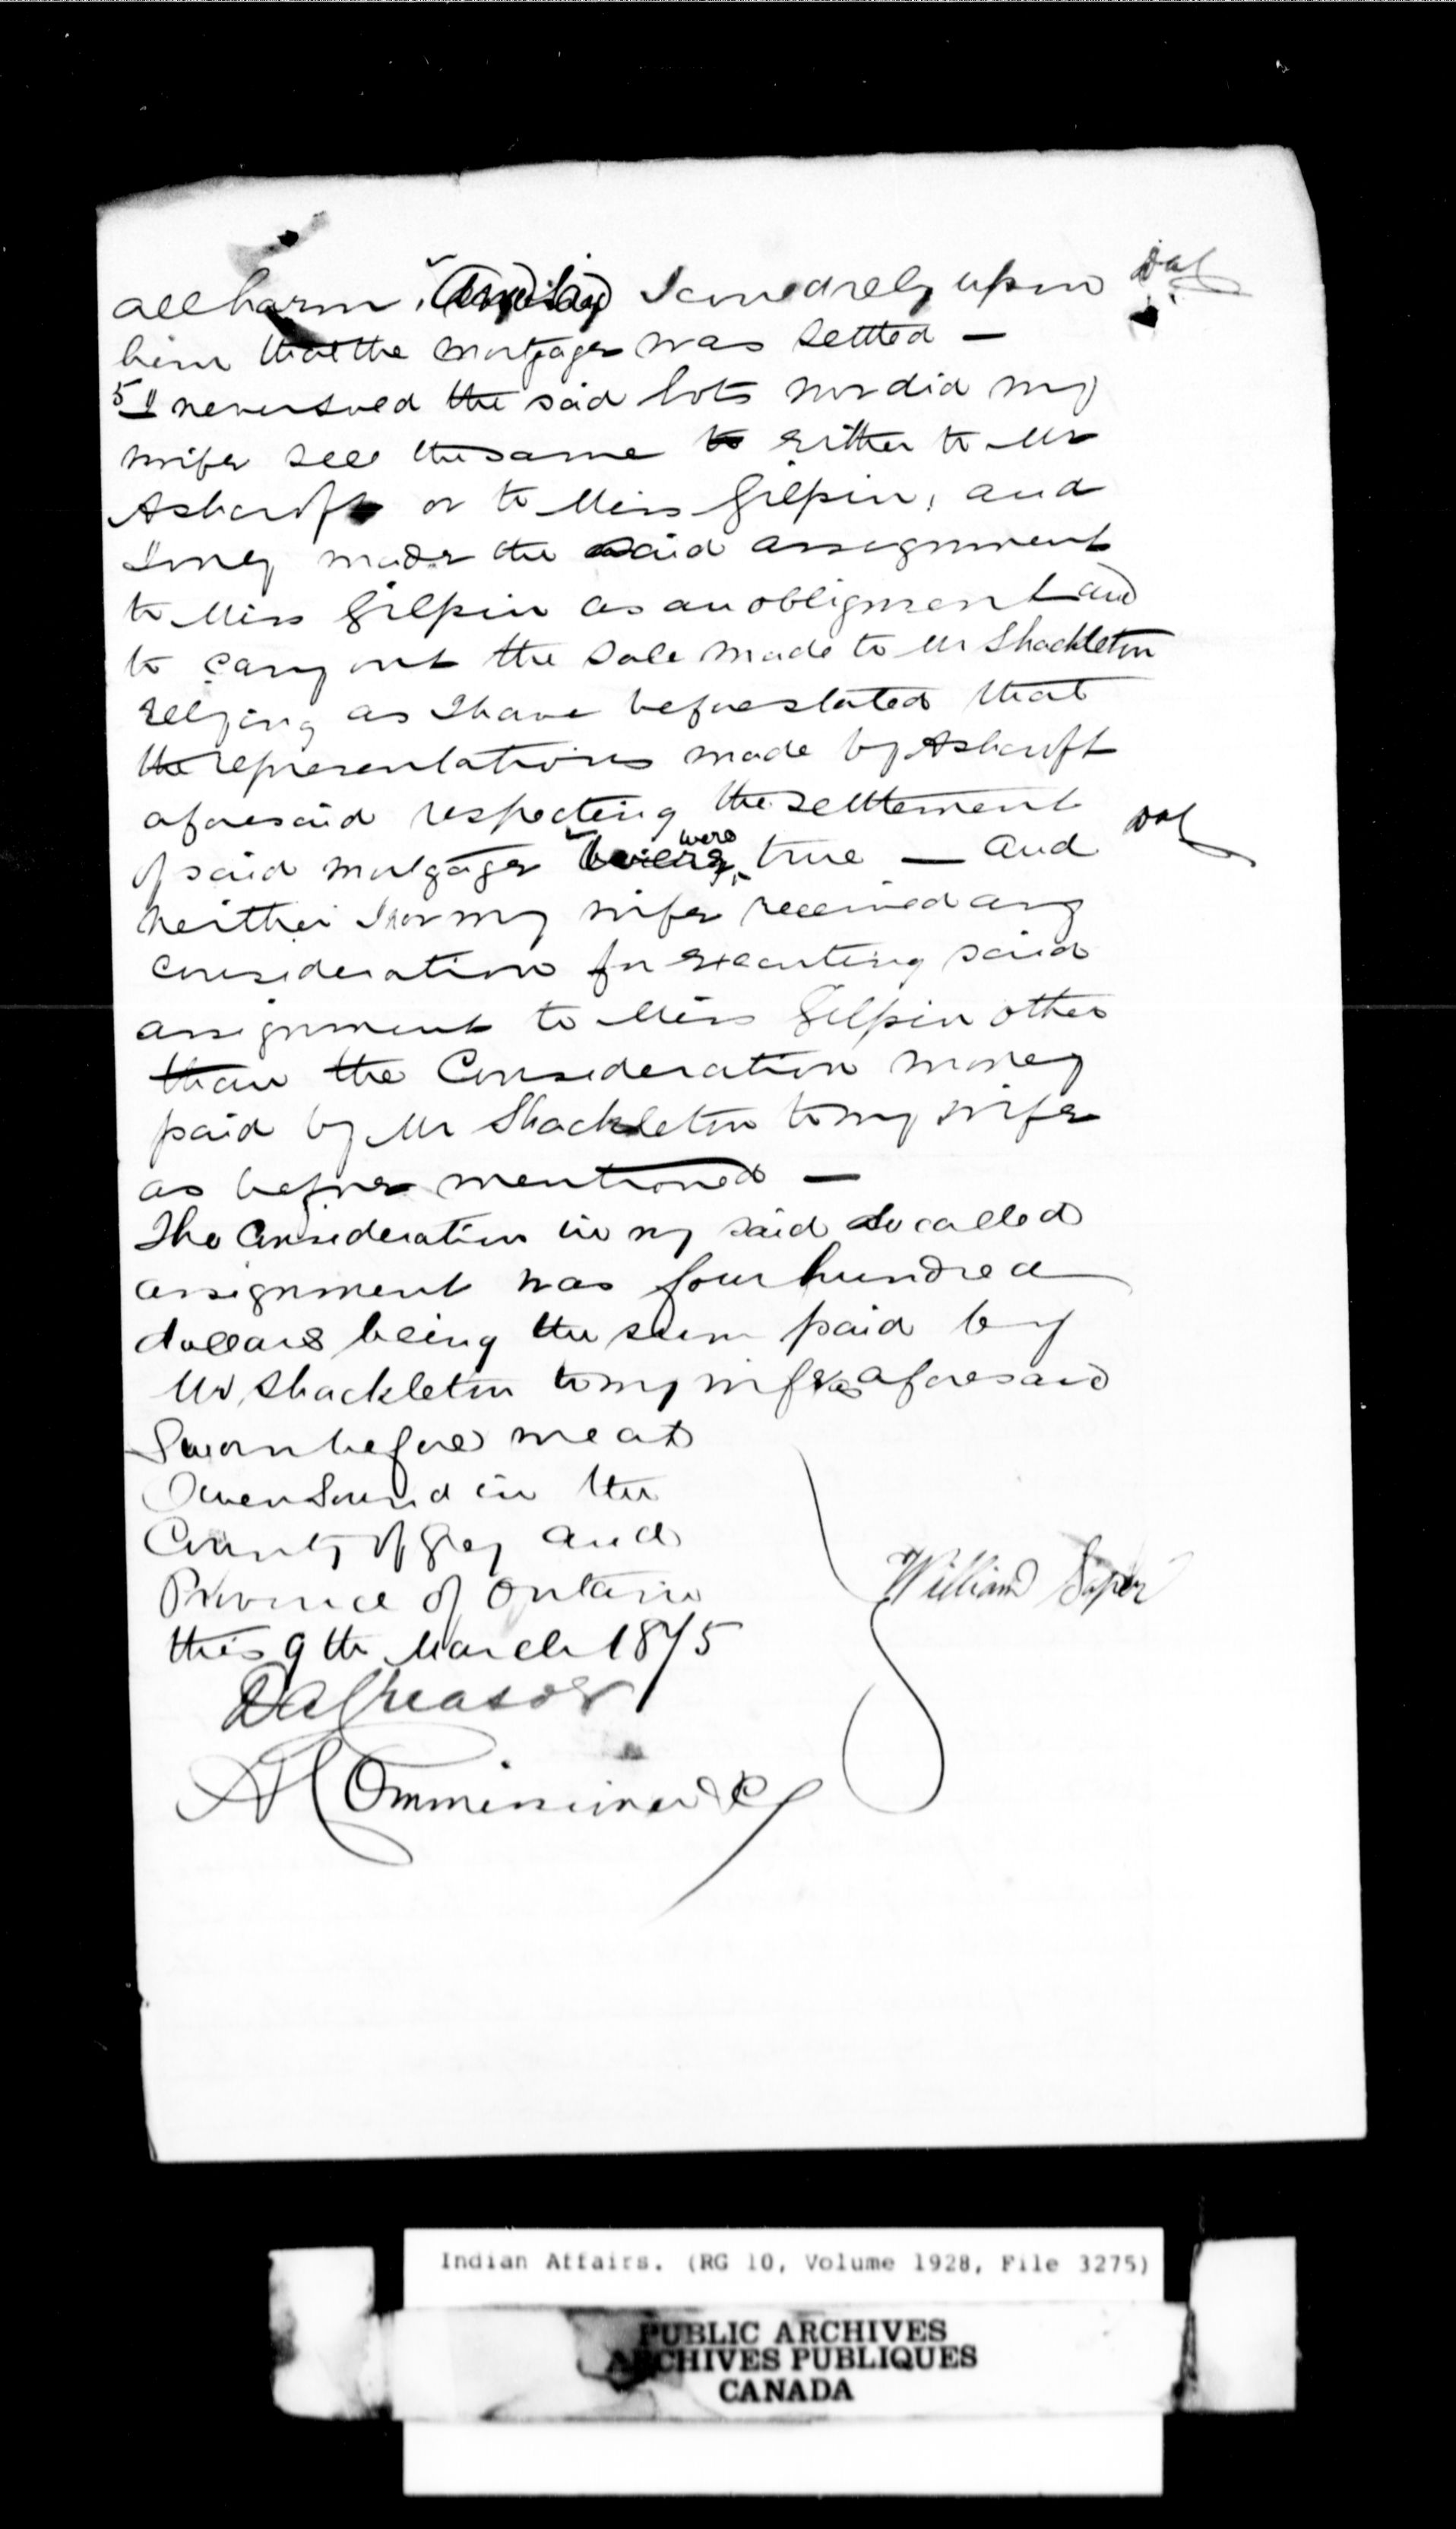 all harm, I solely upon DAC
him that the mortgages was settled —
5 I never sold the said lots nor did my
wife sell the same to either to Mr
Ashcroft or to Miss Gilpin, and
I only made the said assignment
to Miss Gilpin as an obligment and
to carry out the sale made to Mr Shackleton
relying as I have before stated that
the representations made by Ashcroft
aforesaid respecting the settlement
of said mortgages were true — and DAC
neither I nor my wife received any
consideration for executing said
assignment to Miss Gilpin other
than the Consideration money
paid by Mr Shackleton to my wife
as before mentioned —
The Consideration in my said so called
assignment was four hundred
dollars being the sum paid by
Mr Shackleton to my wife as aforesaid
Sworn before me at
Owen Sound in the
County of Grey and
Province of Ontario
this 9th March 1875
William Soper
DA Creasor
A Commissioner &c
Indian Affairs. (RG 10, Volume 1928, File 3275)
PUBLIC ARCHIVES
ARCHIVES PUBLIQUES
CANADA